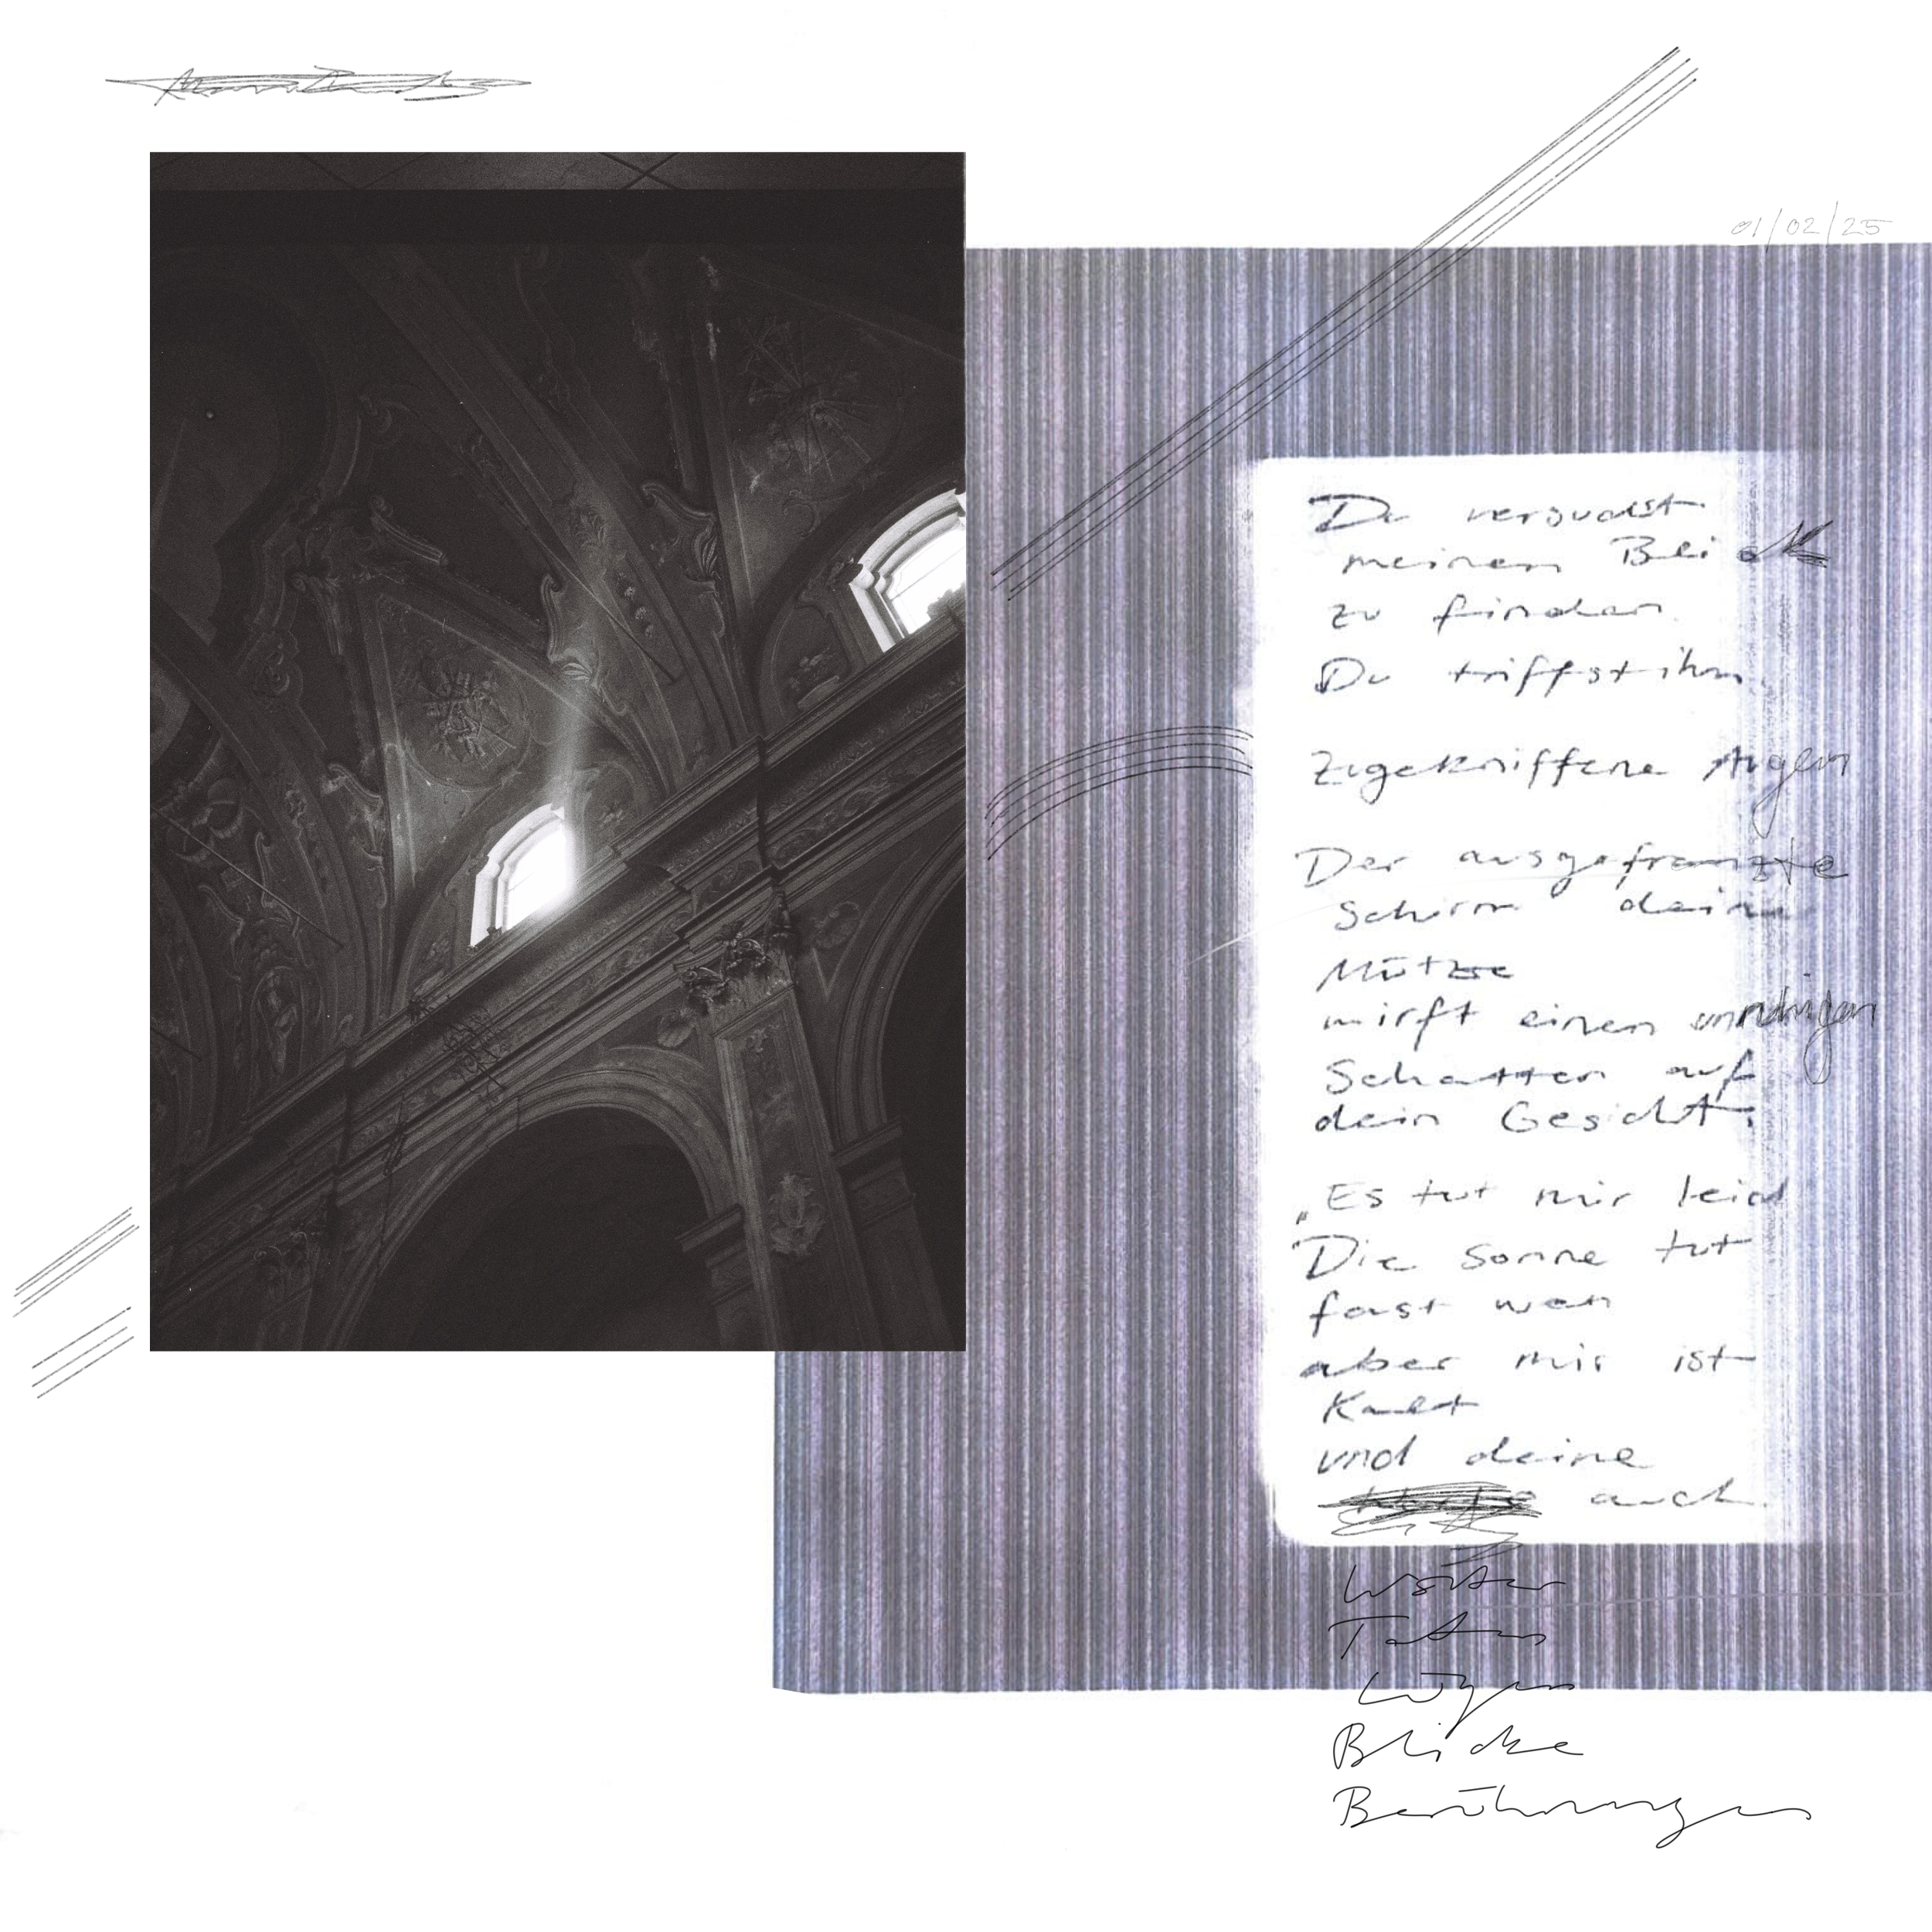 01/02/25
Du versuchst
meinen Blick
zu finden
Du triffst ihn.
Zugekniffene Augen
Der ausgefranzte
Schirm deiner
Mütze
wirft einen unruhigen
Schatten auf
dein Gesicht.
„Es tut mir leid
Die Sonne tut
fast weh
aber mir ist
Kalt
und deine
auch
Wörter
Taten
Lügen
Blicke
Berührungen